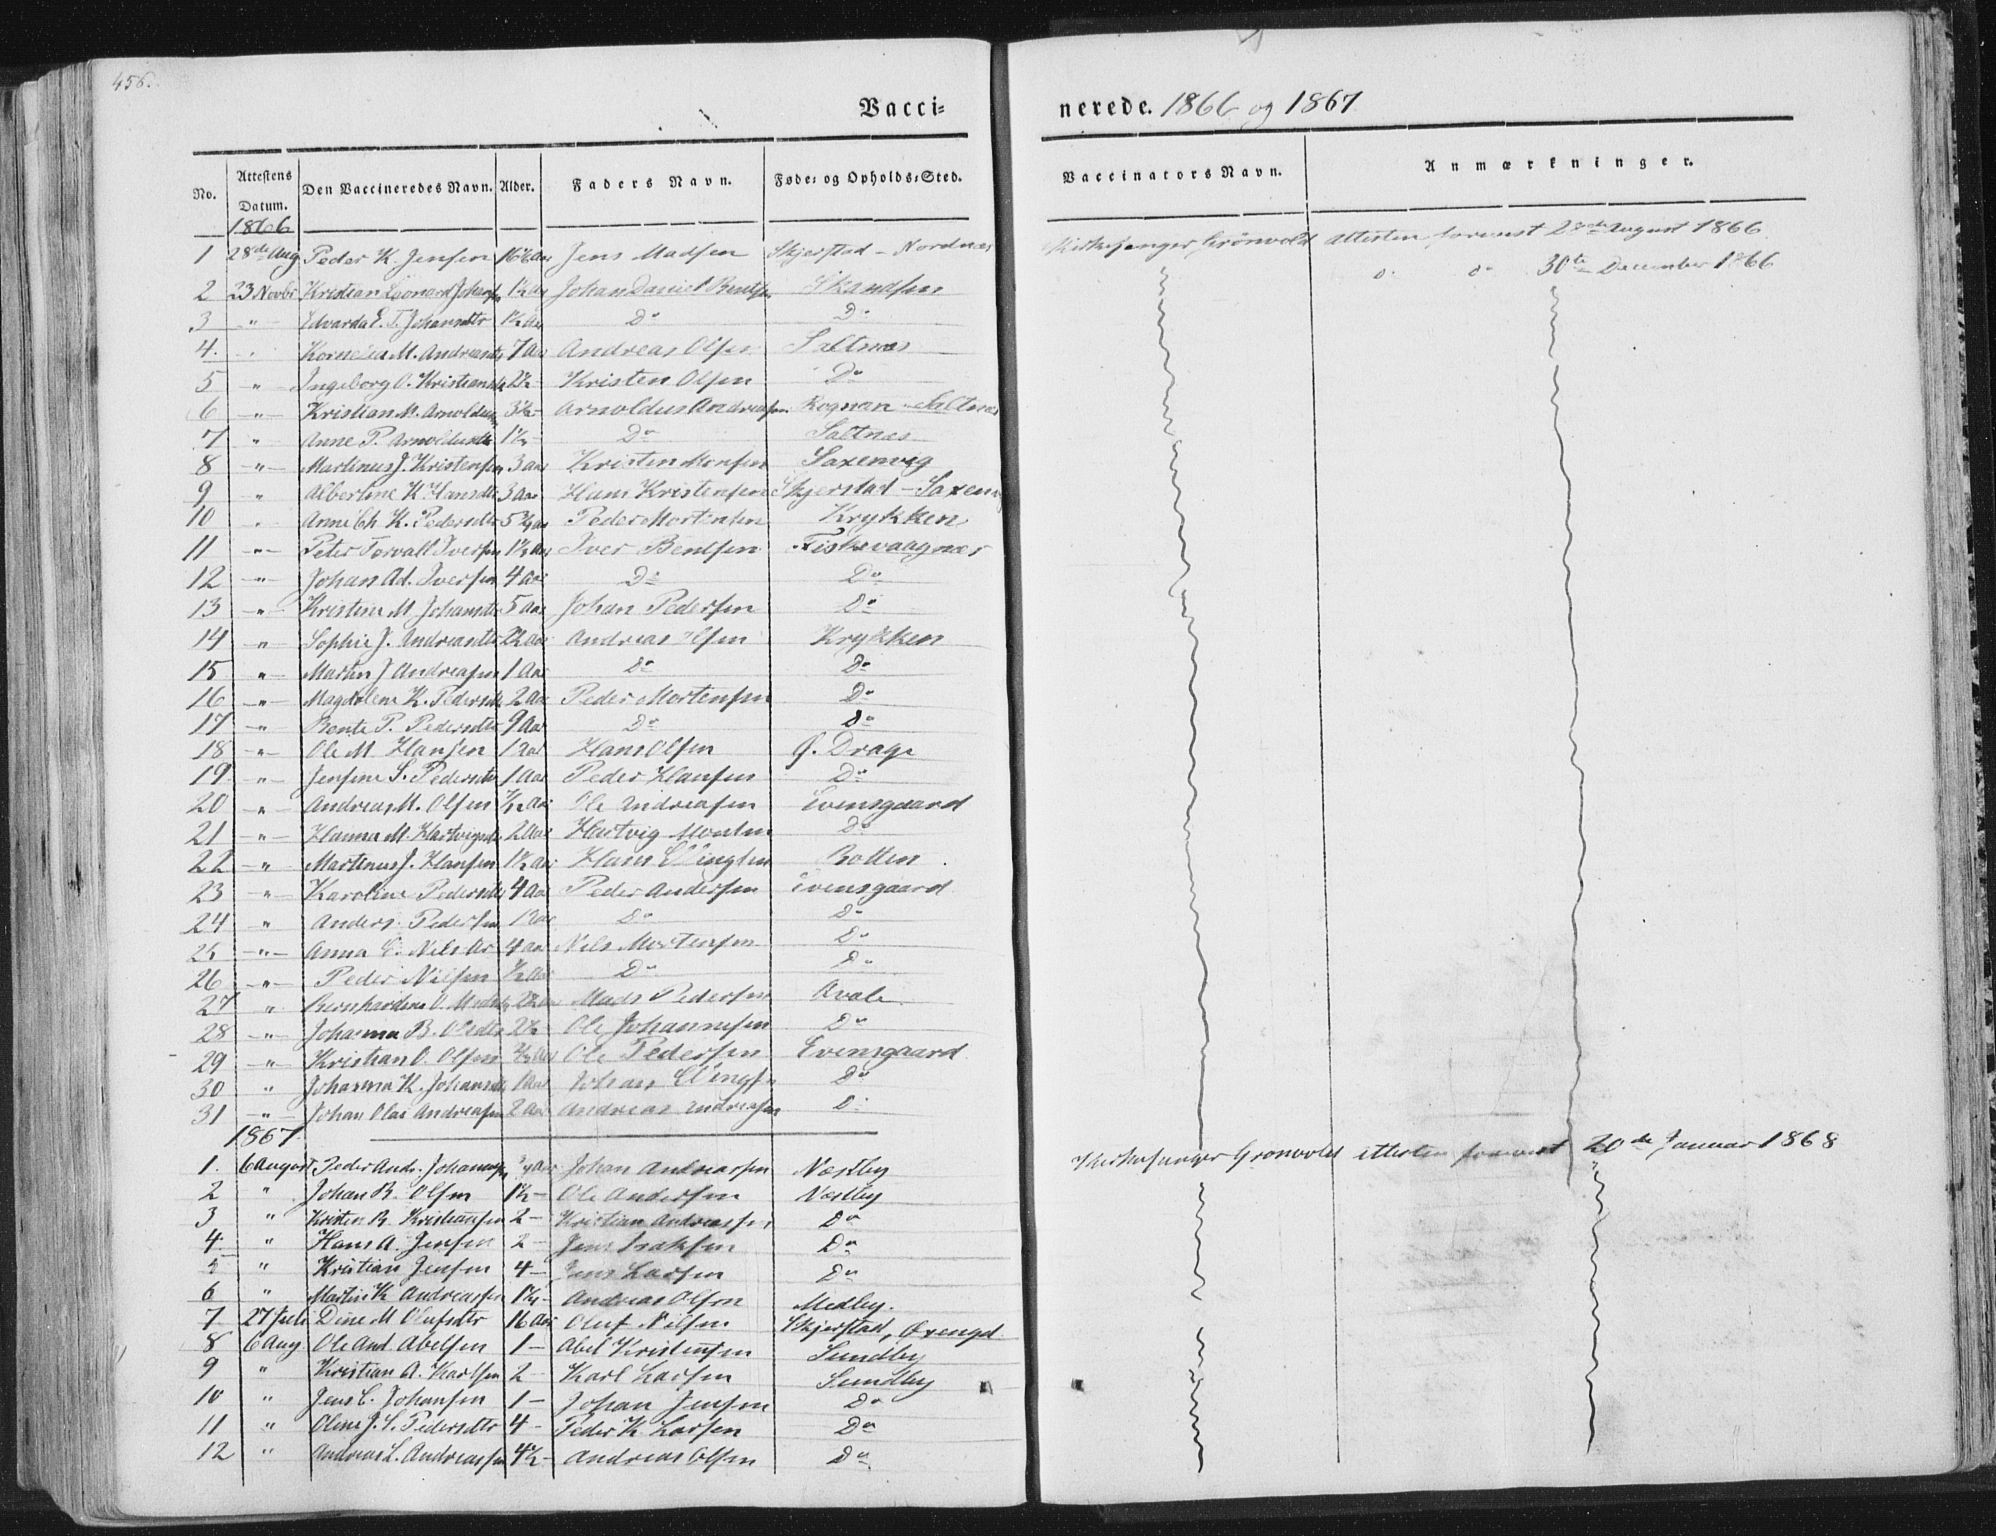 456.
Vaccinerede. 1866 og 1867
No. Attestens Datum. Den Vaccineredes Navn. Alder. Faders Navn. Føde- og Opholds-Sted. Vaccinators Navn. Anmærkninger.
1866
1 28de Aug Peder K. Jensen Jens Madsen Skjerstad - Nordnæs Kirkesanger Grönvold Attesten forevist August 1866
2 23 Novbr Kristian Leonard Johansen 1½ Aar Johan Daniel Bentsen do do 30te December 1866
3 " Edvarda E. J. Johansdtr 1½ Aar Do Do
4 " M. Andreasdtr 7 Aar Andreas Olsen Saltnæs
5 " Ingeborg O. Kristensdtr 2½ - Kristen Olsen Do
6 " Kristian M. Arnoldusen 3½ - Arnoldus Andreasen Rognan - Saltnæs
7 " Anne P. Arnoldusdtr Do Saltnæs
8 " Martinus J. Kristensen 3 Aar Kristen Monsen Saxenvig
9 " Albertine K. Hansdtr 3 Aar Hans Kristensen Skjerstad - Saxenvig
10 " Anne Ch. K. Pedersdtr Peder Mortensen Krykken
11 " Peter Torvalt Iversen 1½ Aar Iver Bentsen Fiskevaagnæs
12 " Johan Ad. Iversen 4 Aar Do Do
13 " Kristine M. Johansdtr 5 Aar Johan Pedersen Do
14 " Sophie J. Andreasdtr 2½ Aar Andreas Olsen Krykken
15 " Martin J Andreasen 1 Aar Do Do
16 " Magdalene K. Pedersdtr 2 Aar Peder Mortensen Do
17 " Bente P. Pedersdtr 9 Aar Do Do
18 " Ole M. Hansen 1 Aar Hans Olsen Drage
19 " Jensine S. Pedersdtr 1 Aar Peder Hansen Do
20 " Andreas M. Olsen Ole Andreasen Evensgaard
21 " Hanna M. Hartvigsdtr 2 Aar Hartvig Do
22 " Martinus J. Hansen 1½ Aar Hans Ellingsen Botten
23 " Karoline Pedersdtr 4 Aar Peder Andersen Evensgaard
24 " Anders Pedersen 1 Aar Do Do
25 " Anna C. Nilsdtr 4 Aar Nils Mortensen Do
26 " Peder Nilsen ½ Aar Do Do
27 " Bernhardine O. Madsdtr 2½ Aar Mads Pedersen Kvale
28 " Johanna B. Olsdtr 2½ Ole Johannesen Do
29 " Kristian O. Olsen Ole Pedersen Evensgaard
30 " Johanna K. Johansdtr 1 Aar Johan Ellingsen Do
31 " Johan Olai Andreasen 2 Aar Andreas Andreasen Do
1867
1. 6 August Peder Andr. Johansen Johan Andreassen Næstby Kirkesanger Grönvold attesten forevist 20de Januar 1868
2 " Johan B. Olsen 1½ - Ole Andersen Næstby
3 " Kristen B. Kristiansen 2 - Kristian Andreassen Do
4 " Hans A. Jensen 2 - Jens Isaksen Do
5 " Kristian Jensen 4 - Jens Larsen Do
6 " Martin K. Andreassen Andreas Olsen Medby.
7 27 Juli Dine M Olufsdtr 16 Aar Oluf Nilsen Skjerstad, Øxengd
8 6 Aug Ole Ant. Abelsen 1 - Abel Kristensen Sundby
9 " Kristian A. Karlsen 2 - Karl Larsen Sundby
10 " Jens C. Johansen 1 - Johan Jensen Do
11 " Oline J. S. Pedersdtr 4 - Peder K. Larsen Do
12 " Andreas L. Andreassen 4½ - Andreas Olsen Do